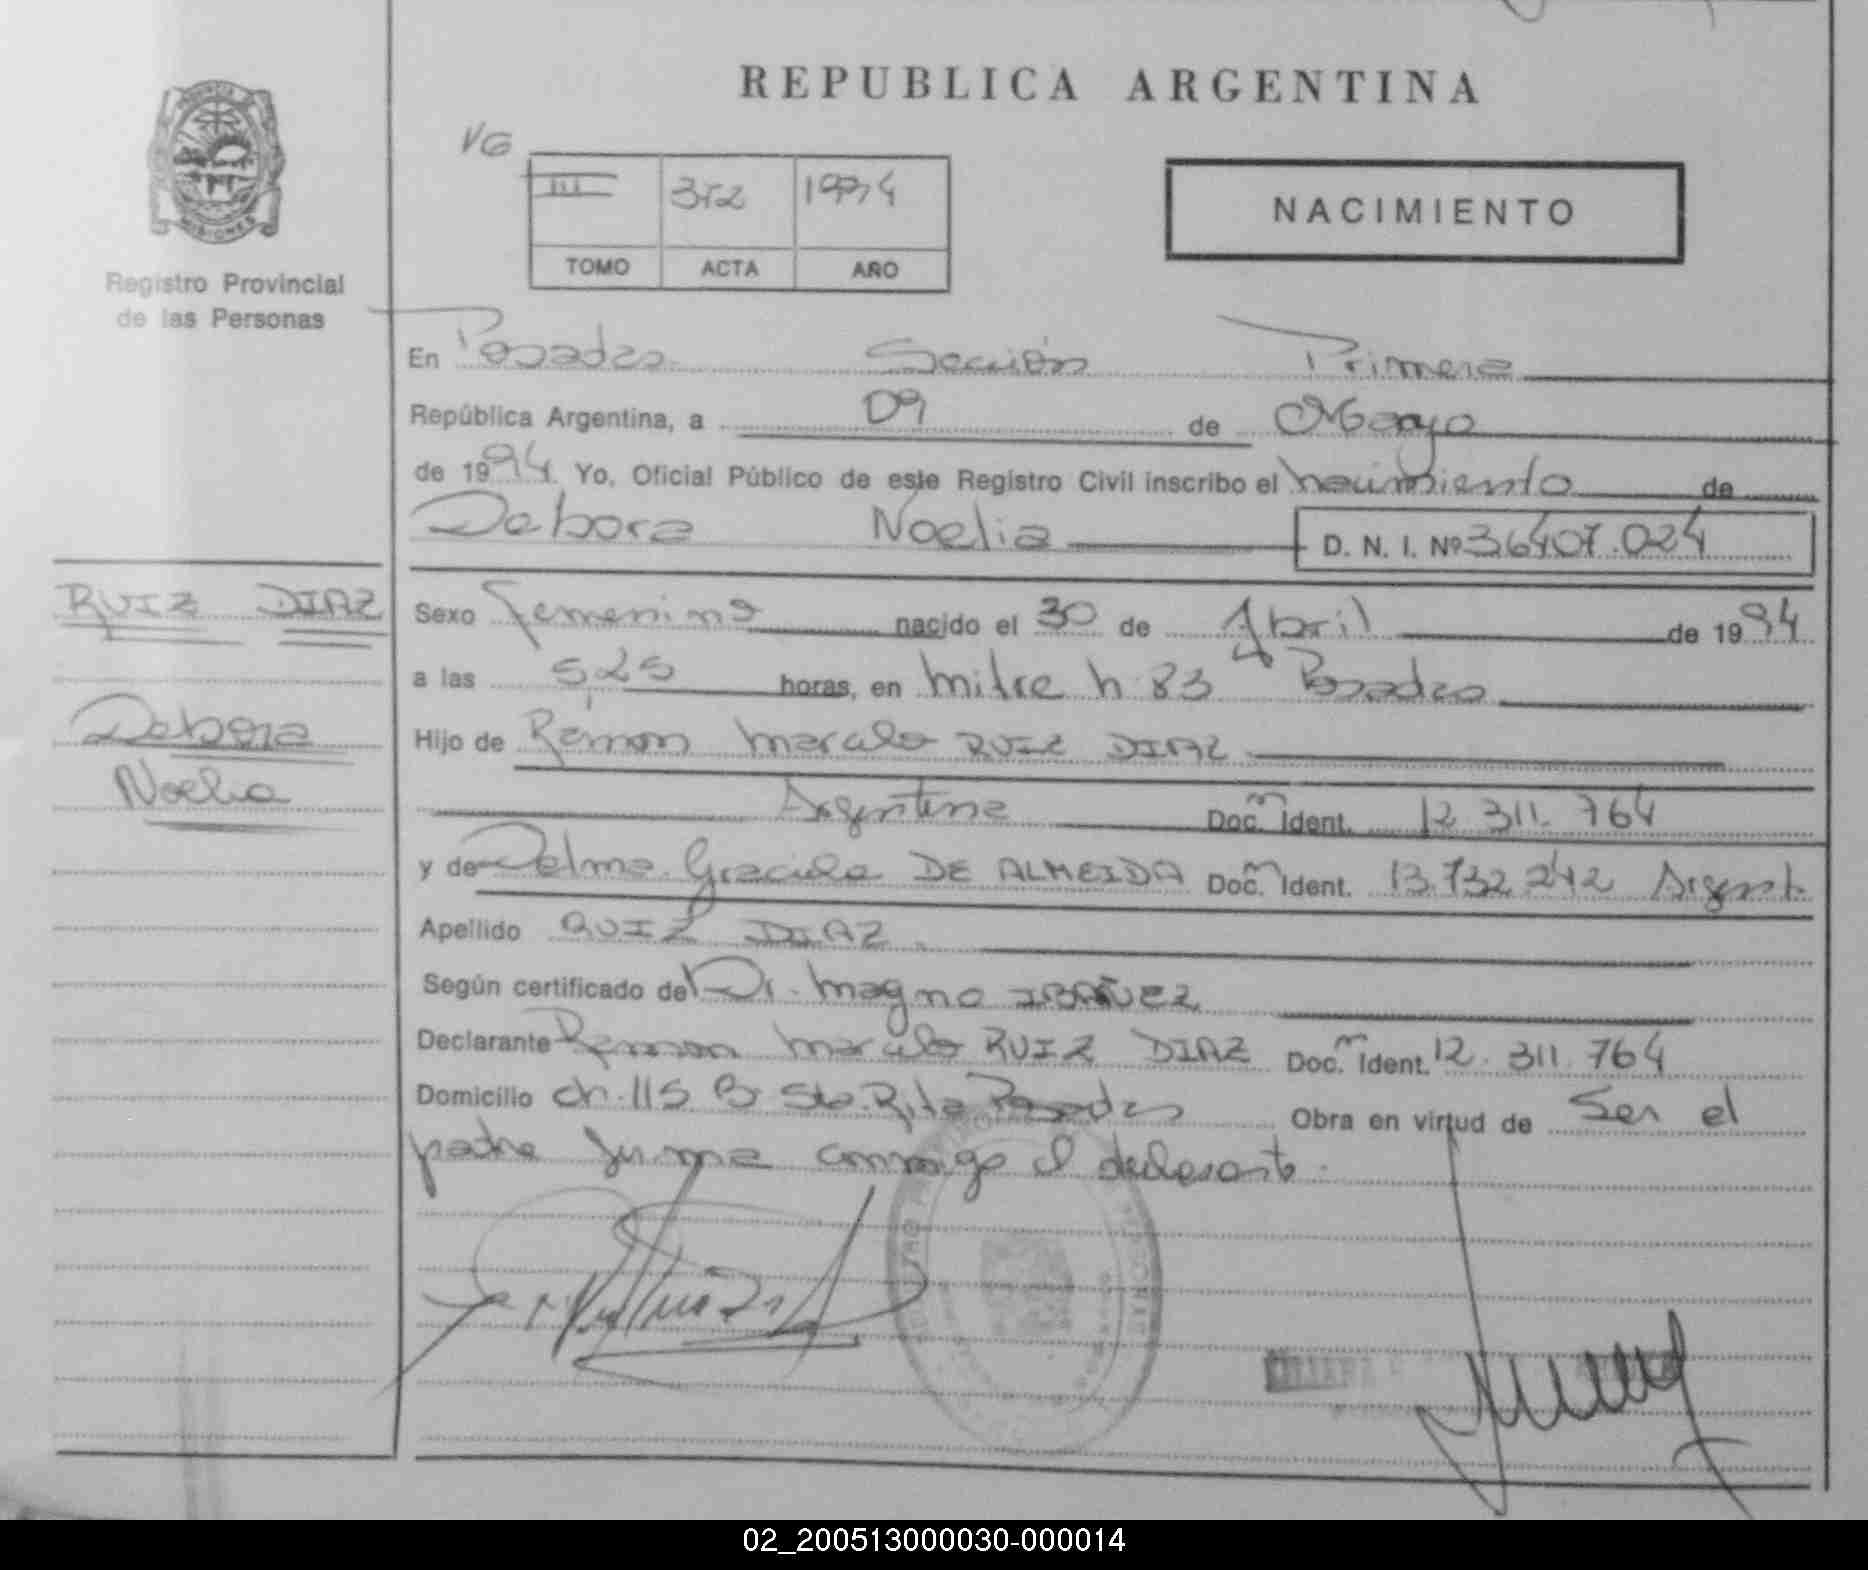 REPUBLICA ARGENTINA
VG
III 372 1994
TOMO ACTA AÑO
NACIMIENTO
PROVINCIA DE MISIONES
Registro Provincial
de las Personas
En Posadas Sección Primera
República Argentina, a 09 de Mayo
de 1994. Yo, Oficial Público de este Registro Civil inscribo el nacimiento de
Debora Noelia D. N. I. Nº 36407.024
RUIZ DIAZ
Debora
Noelia
Sexo femenino nacido el 30 de Abril de 1994
a las 5,25 horas, en Mitre h 83 Posadas
Hijo de Ramon Marcelo RUIZ DIAZ
Argentina Doc.m Ident. 12 311. 764
y de Delma Graciela DE ALMEIDA Doc.m Ident. 13.732 242 Argent.
Apellido RUIZ DIAZ.
Según certificado del Dr. Magno IBAÑEZ
Declarante Ramon Marcelo RUIZ DIAZ Doc.m Ident. 12. 311. 764
Domicilio ch. 115 B Sta. Rita Posadas Obra en virtud de Ser el
padre firma conmigo el declarante.
02_200513000030-000014